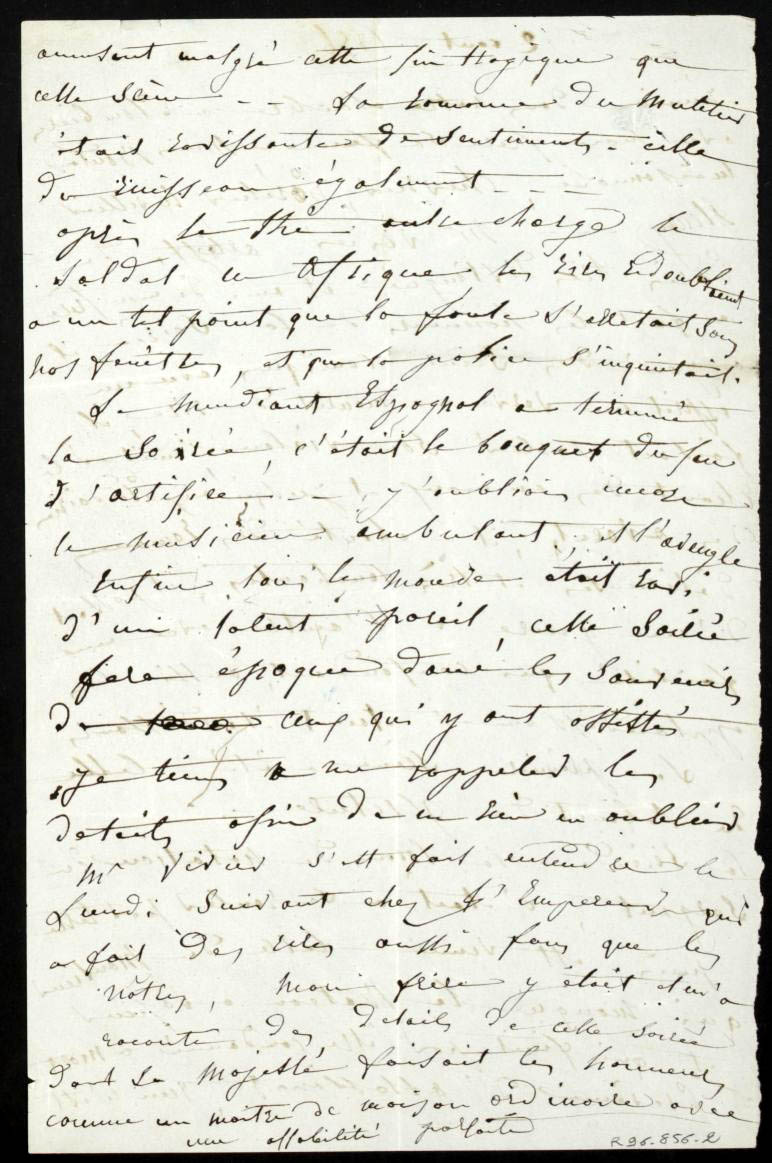 amusent malgré cette fin tragique que
cette Scène - - La romance du Muletier
était ravissante de Sentiments - celle
du ruisseau également - - -
après le thé autre charge le
Soldat en Afrique, les rires redoublaient
a un tel point que la foule S'arretait Sous
nos fenêtres, et que la police S'inquietait.
Le mendiant Espagnol a terminé
la Soirée, c'était le bouquet du feu
d'artifice - - j'oubliais encore
le musicien ambulant, et l'aveugle
Enfin tous le monde était ravi
d'un talent pareil, cette Soirée
fera époque dans les Souvenirs
de ceux qui y ont assistés
je tiens a me rappeler les
details afin de ne rien en oublier
Mr Vivier s'est fait entendre le
Lundi Suivant chez l'Empereur qui
a fait des rires aussi fous que les
nôtres, mon frère y était et m'a
raconté des details de cette Soirée
dont Sa Majesté faisait les honneurs
comme un maitre de maison ordinaire avec
une affabilité parfaite
R96.856.2